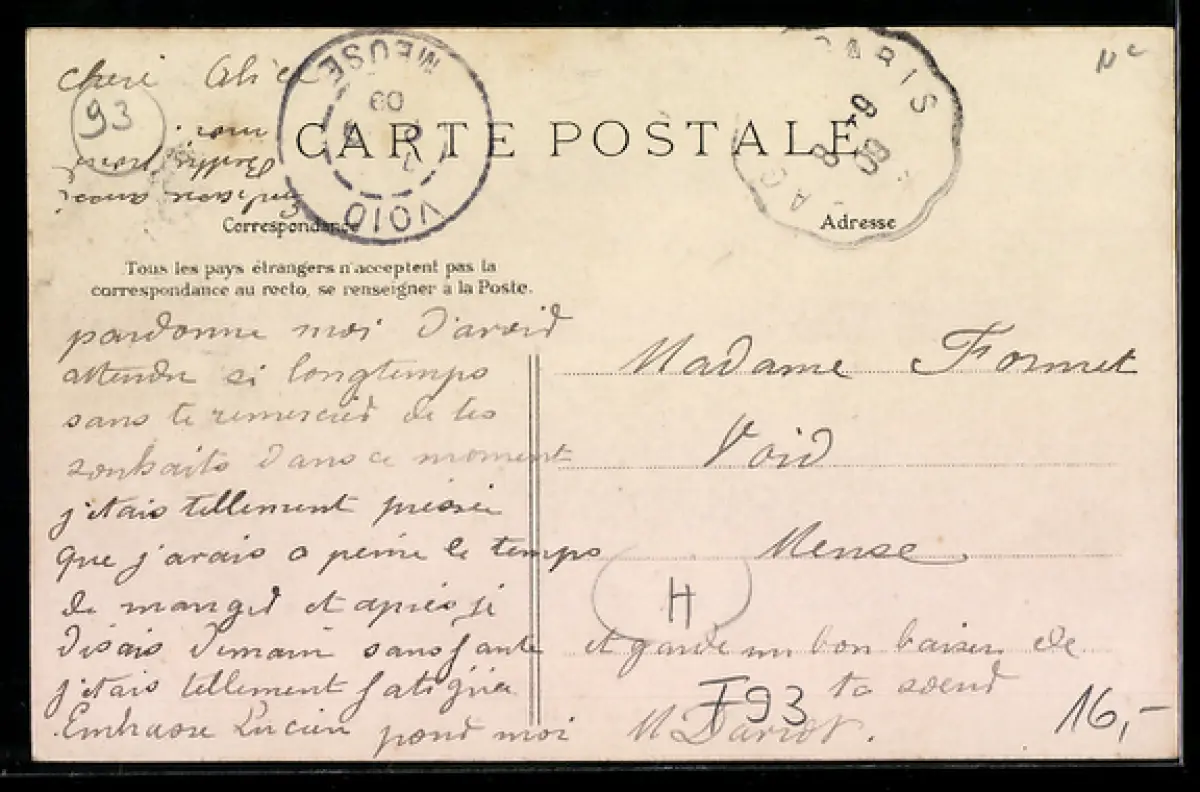 Cheri Alice
93
moi
Embrasse aussi
MEUSE
09
VOID
CARTE POSTALE
PARIS
8-9
09
Correspondance
Adresse
Tous les pays étrangers n'acceptent pas la
correspondance au recto, se renseigner à la Poste.
pardonne moi d'avoid
attendre si longtemps
sans te remercied de tes
souhaits dans ce moment
j'etais tellement préssée
que j'avais a peine le temps
de manged et après je
disais demain sans faute
j'etais tellement fatiguée
Embrasse Lucien pond moi
et garde un bon baiser de
ta soeud
M Darrot.
Madame Formet
Void
Meuse
H
F93
16,-